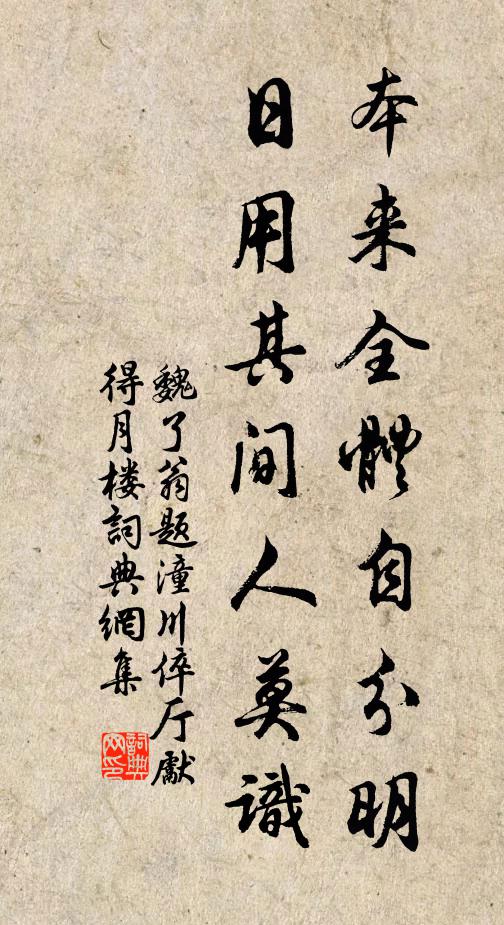 本来全體自分明
日用其间人莫識
魏了翁题潼川倅厅獻
得月楼詞典網集
詞典网印